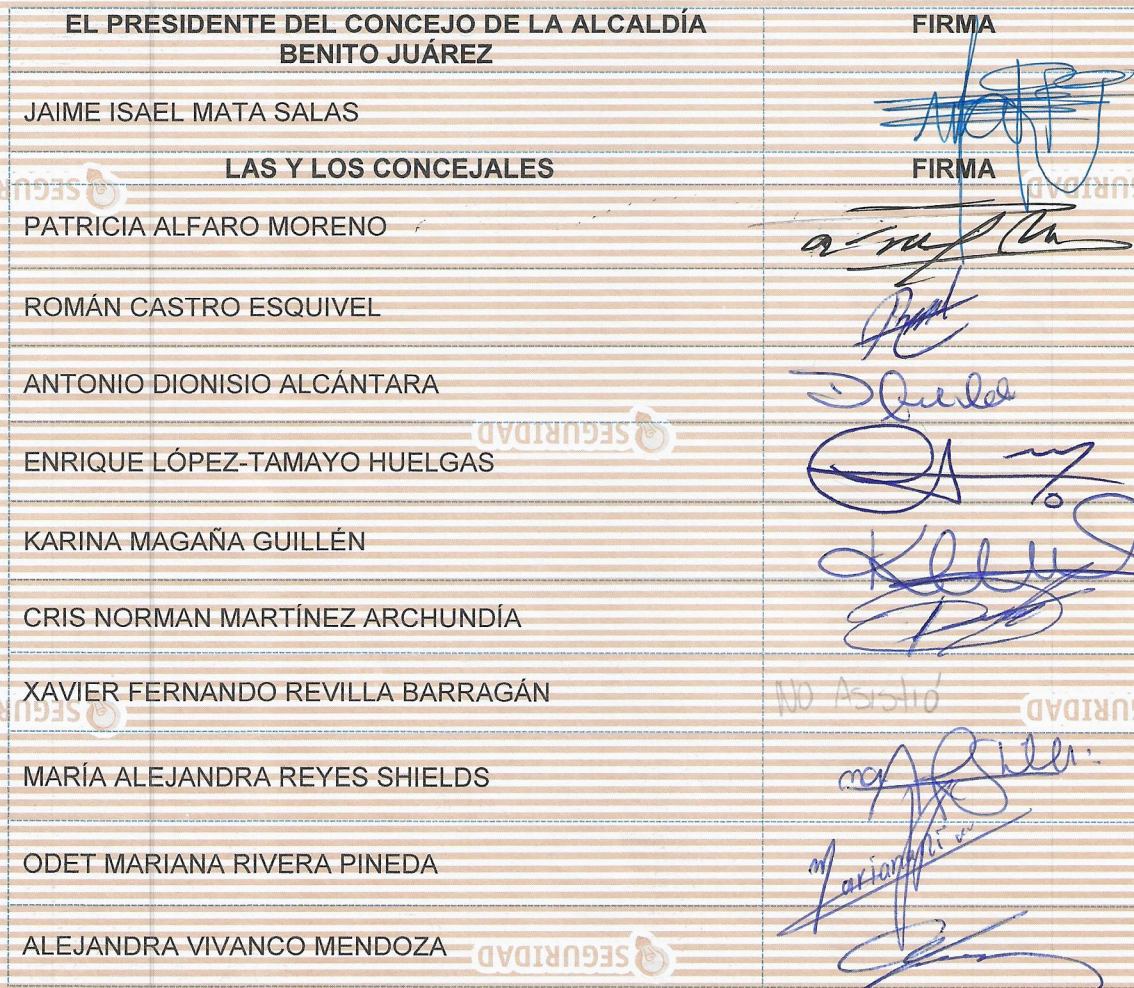 EL PRESIDENTE DEL CONCEJO DE LA ALCALDÍA BENITO JUÁREZ FIRMA
JAIME ISAEL MATA SALAS
LAS Y LOS CONCEJALES FIRMA
PATRICIA ALFARO MORENO
ROMÁN CASTRO ESQUIVEL
ANTONIO DIONISIO ALCÁNTARA
SEGURIDAD
ENRIQUE LÓPEZ-TAMAYO HUELGAS
KARINA MAGAÑA GUILLÉN
CRIS NORMAN MARTÍNEZ ARCHUNDÍA
XAVIER FERNANDO REVILLA BARRAGÁN NO Asistió
MARÍA ALEJANDRA REYES SHIELDS
ODET MARIANA RIVERA PINEDA
ALEJANDRA VIVANCO MENDOZA SEGURIDAD